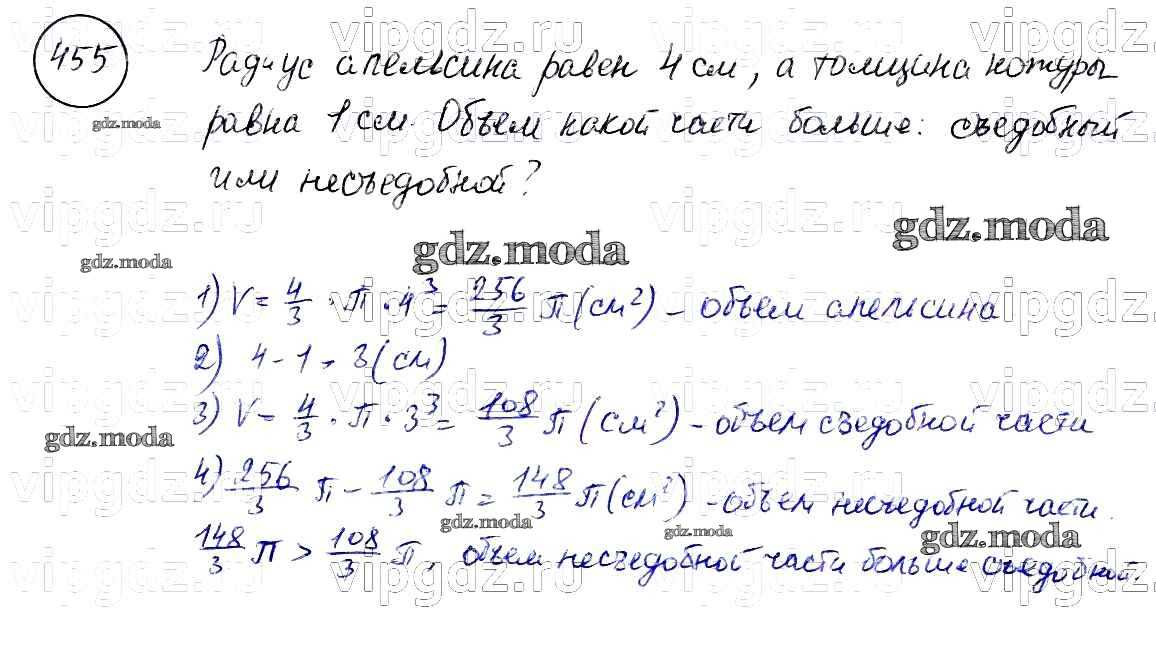 455
Радиус апельсина равен 4 см, а толщина кожуры
равна 1 см. Объем какой части больше: съедобный
или несъедобной?
1) V = 4/3 · π · 4³ = 256/3 π (см²) – объем апельсина
2) 4 - 1 = 3 (см)
3) V = 4/3 · π · 3³ = 108/3 π (см²) – объем съедобной части
4) 256/3 π – 108/3 π = 148/3 π (см²) – объем несъедобной части.
148/3 π > 108/3 π, объем несъедобной части больше съедобной.
vipgdz.ru
gdz.moda